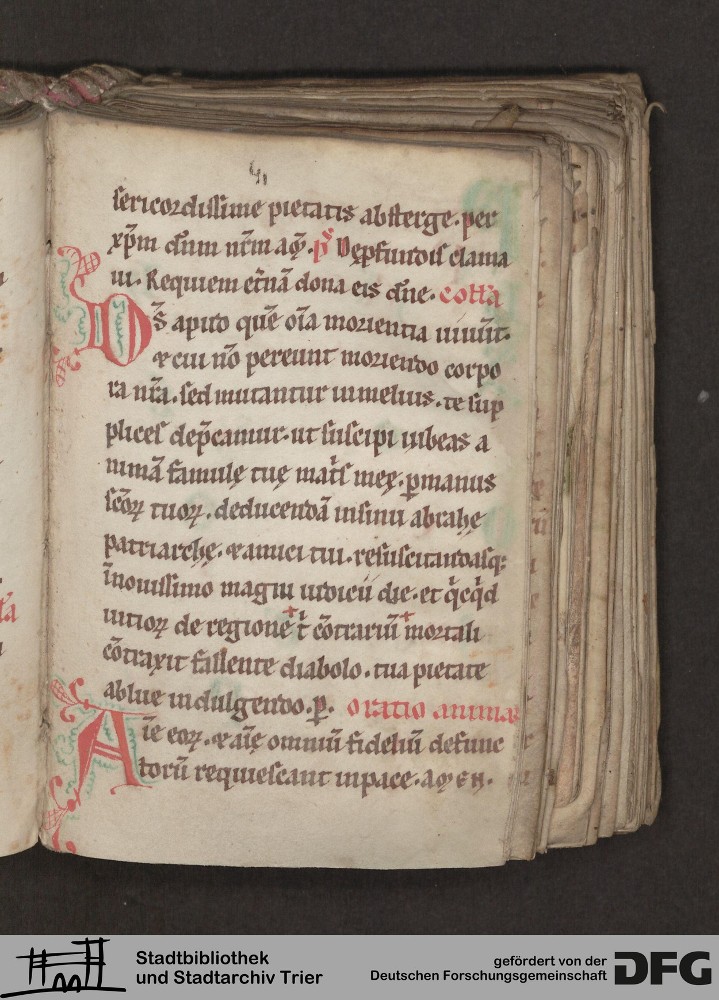 sericordissime pietatis absterge. per
xp̄m dn̄m nr̄m am̄. ps̄ De p̄fundis clama
ui. Requiem et̄nā dona eis dn̄e. Coll̄a
Ds̄ apud quē oīa morientia uiuūt.
& cui nō pereunt moriendo corpo
ra nr̄a. sed mutantur in melius. te sup
plices dep̄camur. ut suscipi iubeas a
nimā famulę tuę mat̄s meę. ꝑ manus
sc̄oꝝ tuoꝝ. deducendā in sinu abrahę
patriarchę. & amici tui. resuscitandāsq;
ī nouissimo magni iudicii die. et q̄cq̄d
uitioꝝ de regione + t̄ cōtrariū + mortali
cōtraxit fallente diabolo. tua pietate
ablue indulgendo. ꝑ. oratio animar
Aīe eoꝝ. & aīę omniū fideliū defunc
torū requiescant in pace. amen.
Stadtbibliothek
und Stadtarchiv Trier
gefördert von der
Deutschen Forschungsgemeinschaft
DFG